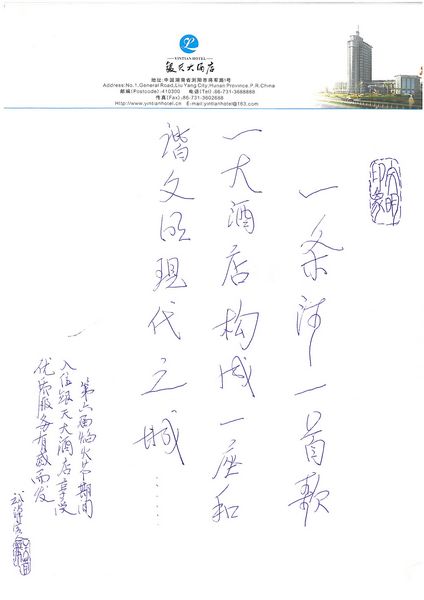 YINTIAN HOTEL
银天大酒店
地址:中国湖南省浏阳市将军路1号
Address:No.1,General Road,Liu Yang City,Hunan Province,P.R.China
邮编(Postcode):410300 电话(Tel):86-731-3688888
传真(Fax):86-731-3602688
Http://www.yintianhotel.cn E-mail:yintianhotel@163.com
文明
印象
一条河一首歌
一大酒店构成一座和
谐文明现代之城……
第六届焰火节期间
入住银天大酒店享受
优质服务有感而发